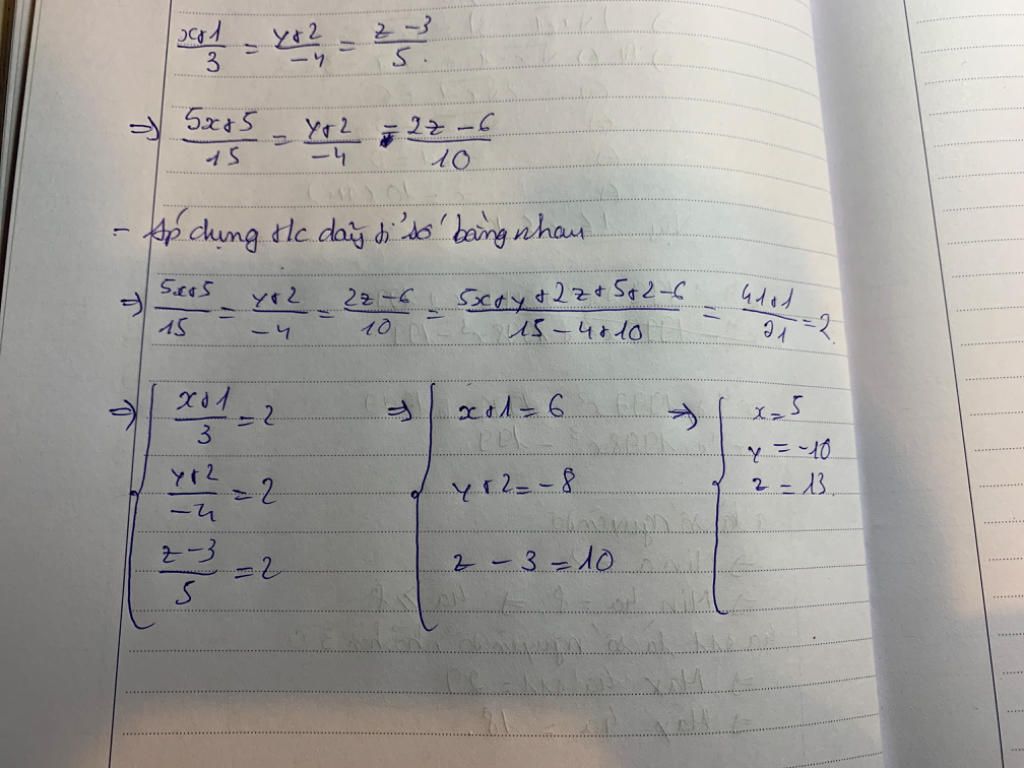 x+1/3 = y+2/-4 = z-3/5.
=> 5x+5/15 = y+2/-4 = 2z-6/10
- Áp dụng t/c dãy tỉ số bằng nhau
=> 5x+5/15 = y+2/-4 = 2z-6/10 = 5x+y+2z+5+2-6/15-4+10 = 41+1/21 = 2.
=> { x+1/3 = 2 => { x+1 = 6 => { x = 5
y = -10
y+2/-4 = 2 y+2 = -8 z = 13.
z-3/5 = 2 z-3 = 10